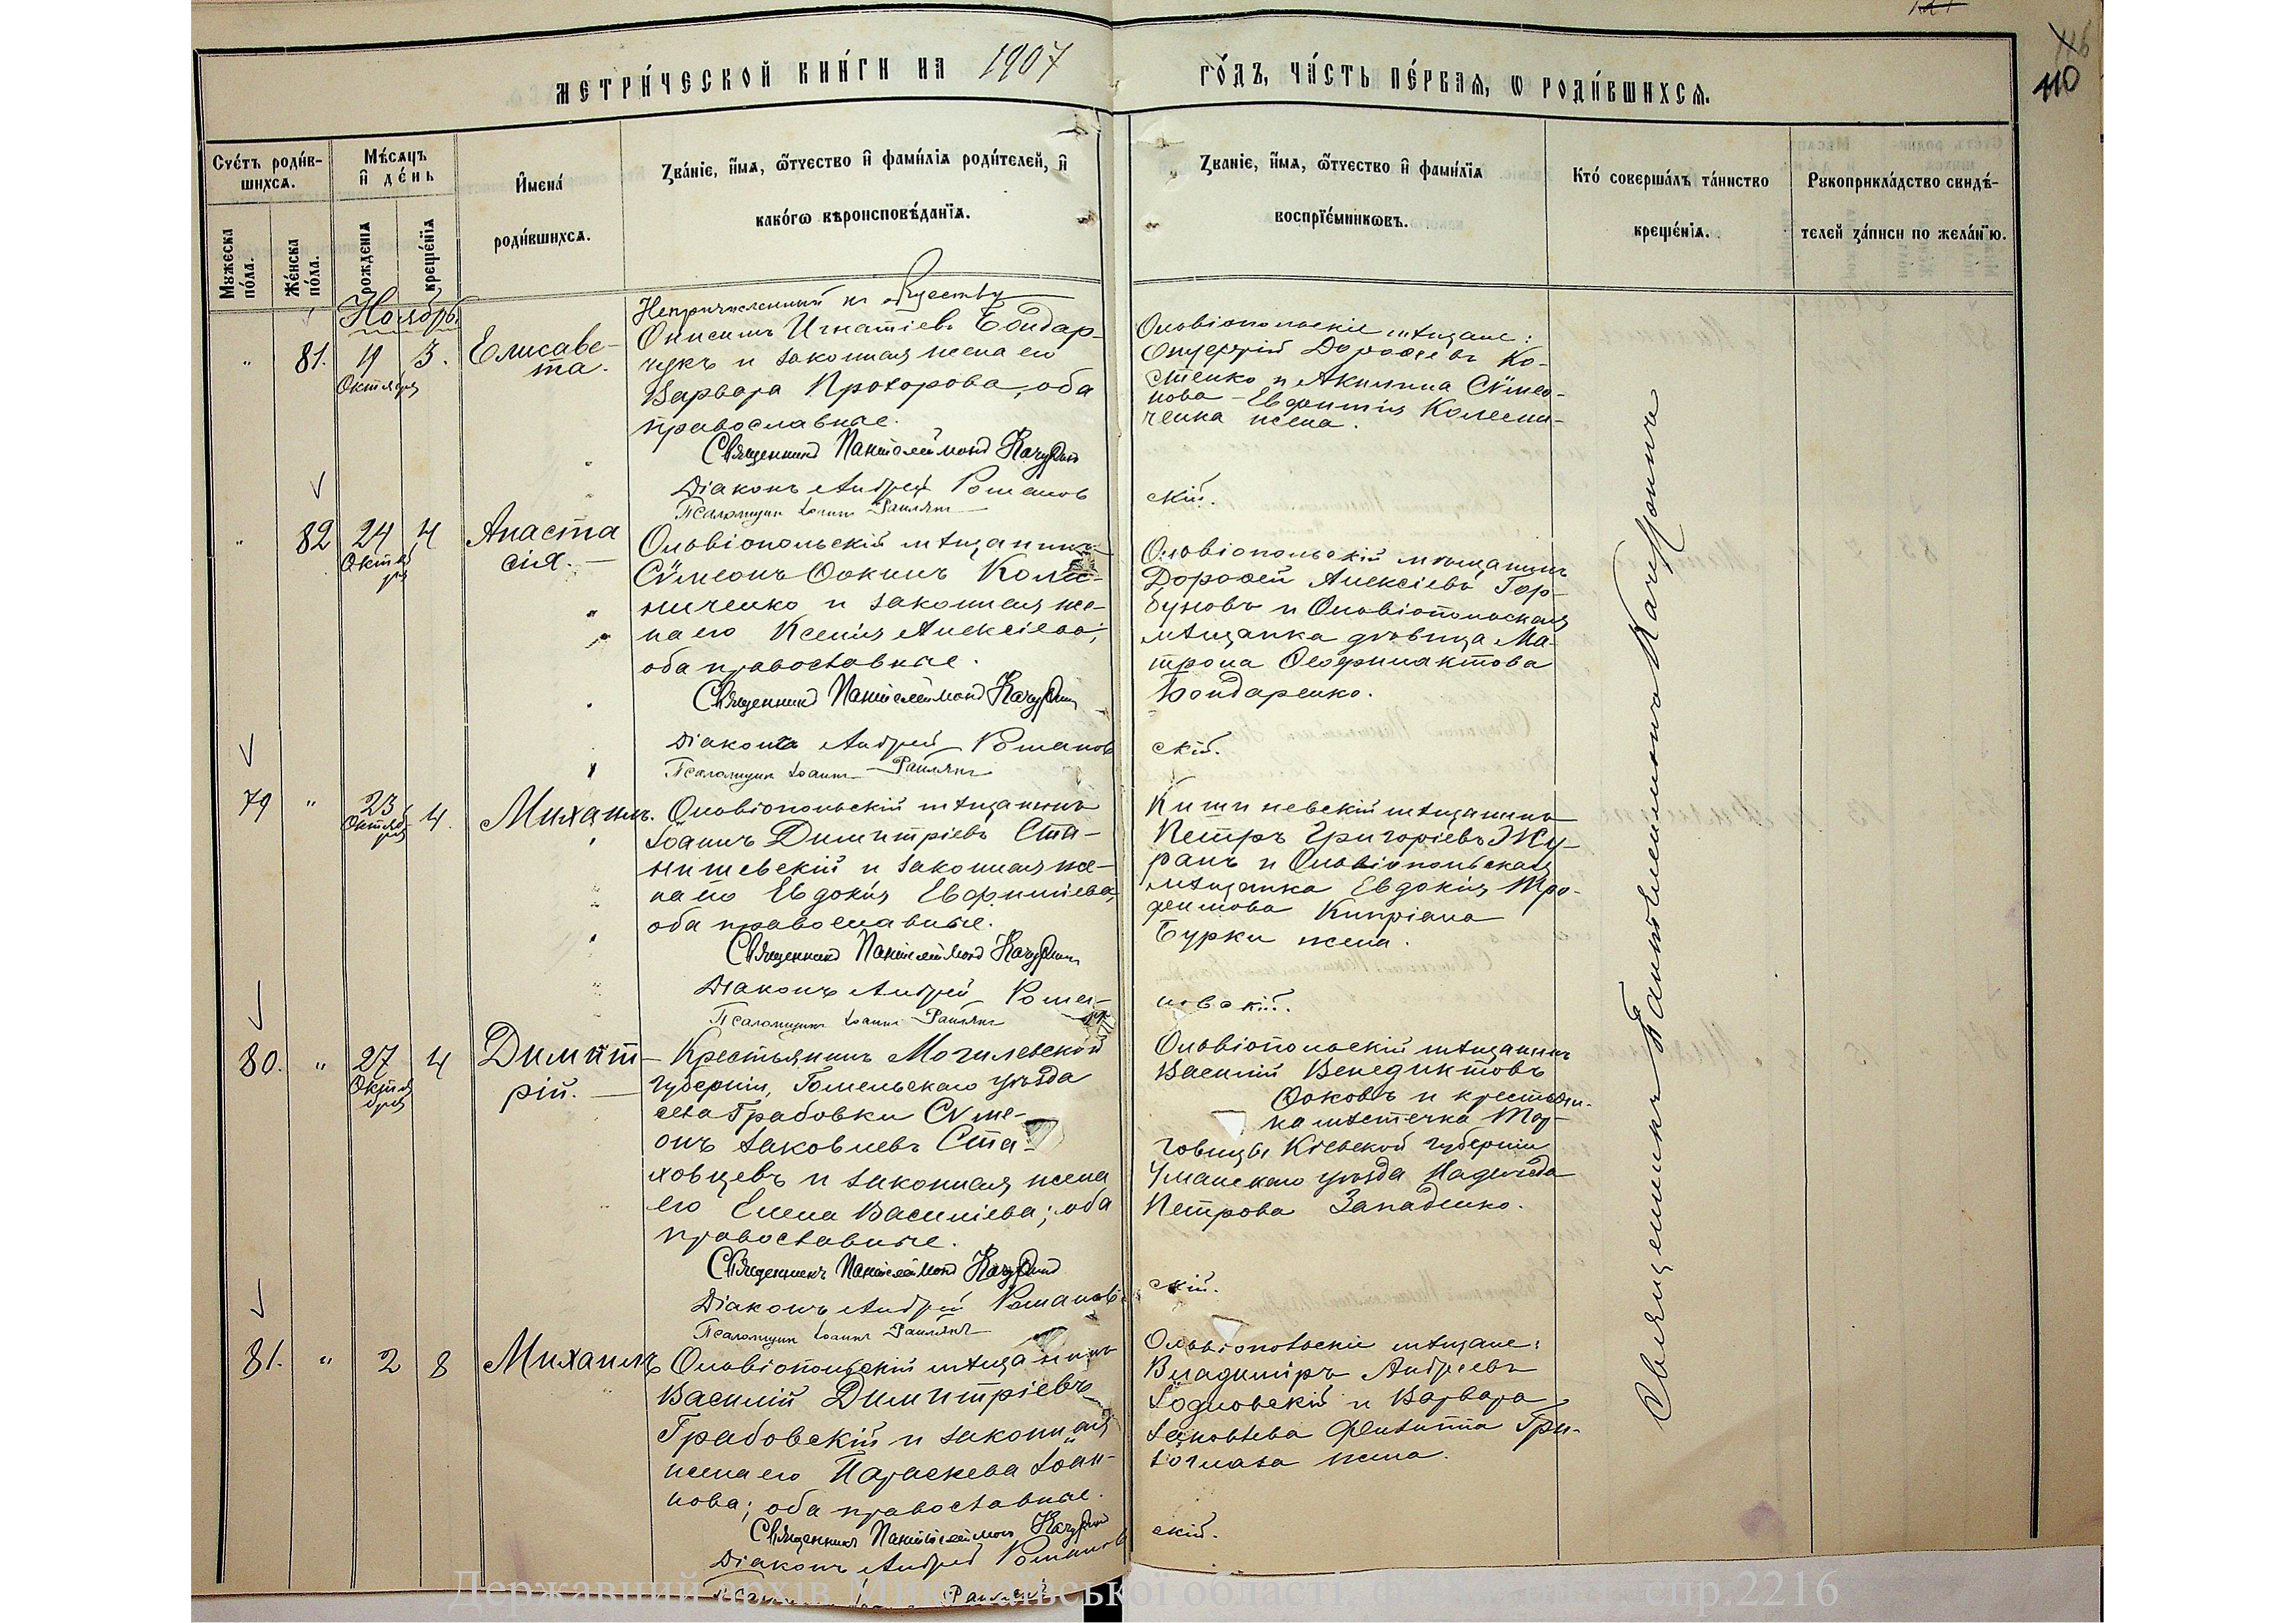 116
110
МЕТРИ́ЧЕСКОЙ КНИ́ГИ НА 1907 ГО́ДЪ, ЧА́СТЬ ПЕ́РВАЯ, Ѡ РОДИ́ВШИХСЯ.
Сче́тъ роди́в-
шихся.
Мужеска по́ла.
Же́нска по́ла.
Мѣ́сяцъ
и҆ де́нь
рожденія
креще́нїя
И҆мена́
роди́вшихся.
Зва́нїе, и҆́мя, ѻ҆́тчество и҆ фами́лїя роди́телей, и҆
како́гѡ вѣроисповѣ́данїя.
Зва́нїе, и҆́мя, ѻ҆́тчество и҆ фами́лїя
воспрїе́мникѡвъ.
Кто́ соверша́лъ та́инство
креще́нїя.
Рукоприкла́дство свидѣ́-
телей за́писи по жела́нїю.
Ноябрь
" 81. 19 Октября 3. Елисаве-
та.
Непричисленный къ обществу
Онисимъ Игнатіевъ Бондар-
чукъ и законная жена его
Варвара Прохорова, оба
православные.
Священникъ Пантелеймонъ
Діаконъ Андрей Романов
Псаломщик Іоанн
Ольвіопольскіе мѣщане:
Онуфрій Дорофеевъ Ко-
стенко и Акилина Сѵмео-
нова – Евфимія Колесни-
ченка жена.
скій.
" 82 24 Октября 4 Анаста
сія.
Ольвіопольскій мѣщанинъ
Сѵмеонъ Фокинъ Коли-
ниченко и законная же-
на его Ксенія Алексіева;
оба православные.
Священникъ Пантелеймонъ
Діаконъ Андрей Романов
Псаломщик Іоанн
Ольвіопольскій мѣщанинъ
Дорофей Алексіевъ Гор-
буновъ и Ольвіопольская
мѣщанка дѣвица Ма-
трона Феофилактова
Бондаренко.
скій.
79 " 23 Октября 4. Михаилъ.
Ольвіопольскій мѣщанинъ
Іоаннъ Димитріевъ Ста-
нишевскій и законная же-
на его Евдокія Евфиміева,
оба православные.
Священникъ Пантелеймонъ
Діаконъ Андрей Рома-
Псаломщик Іоанн
Кишиневскій мѣщанинъ
Петръ Григоріевъ Жу-
ранъ и Ольвіопольская
мѣщанка Евдокія Тро-
фимова Кипріана
Бурки жена.
новскій.
80. " 27 Октября 4 Димит-
рій.
Крестьянинъ Могилевской
губерніи, Гомельскаго уѣзда
села Грабовки Сѵме-
онъ Іаковлевъ Ста-
ховцевъ и законная жена
его Елена Василіева; оба
православные.
Священникъ Пантелеймонъ
Діаконъ Андрей Романов
Псаломщик Іоанн
Ольвіопольскій мѣщанинъ
Василій Венедиктовъ
и крестьян-
ка мѣстечка Тор-
говицы Кіевской губерніи
Уманскаго уѣзда Надежда
Петрова Западенко.
скій.
81. " 2 8 Михаилъ
Ольвіопольскій мѣщанинъ
Василій Димитріевъ
Грабовскій и законная
жена его Параскева Іоан-
нова; оба православные.
Священникъ Пантелеймонъ
Діаконъ Андрей Романов
Ольвіопольскіе мѣщане:
Владиміръ Андреевъ
и Варвара
Іаковлева Филиппа Гри-
жена.
скій.
Священникъ Пантелеимонъ
Державний архів Миколаївської області
спр.2216